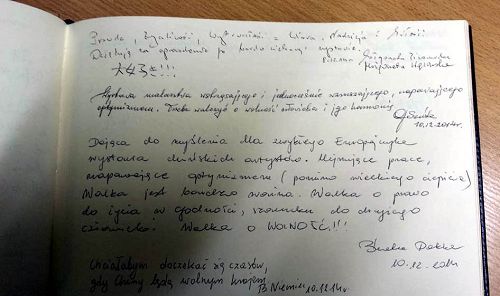 Prawda, Życzliwość, Wytrwałość = Wiara, Nadzieja i Miłość
Dziękuję za oprowadzenie po bardzo ciekawej wystawie.
Małgorzata
!!!
Wystawa malarstwa wstrząsającego i jednocześnie wzruszającego, napawającego
optymizmem. Trzeba walczyć o wolność człowieka i jego harmonię
10.12.2014r.
Dająca do myślenia dla zwykłego Europejczyka
wystawa chińskich artystów. Ujmujące prace,
napawające optymizmem (pomimo wielkiego cierpienia)
Walka jest bardzo ważna. Walka o prawo
do życia w godności, szacunku do drugiego
człowieka. Walka o WOLNOŚĆ!!!
10.12.2014
Chciałabym doczekać się czasów,
gdy Chiny będą wolnym krajem.
B Niemiec 10.12.14r.